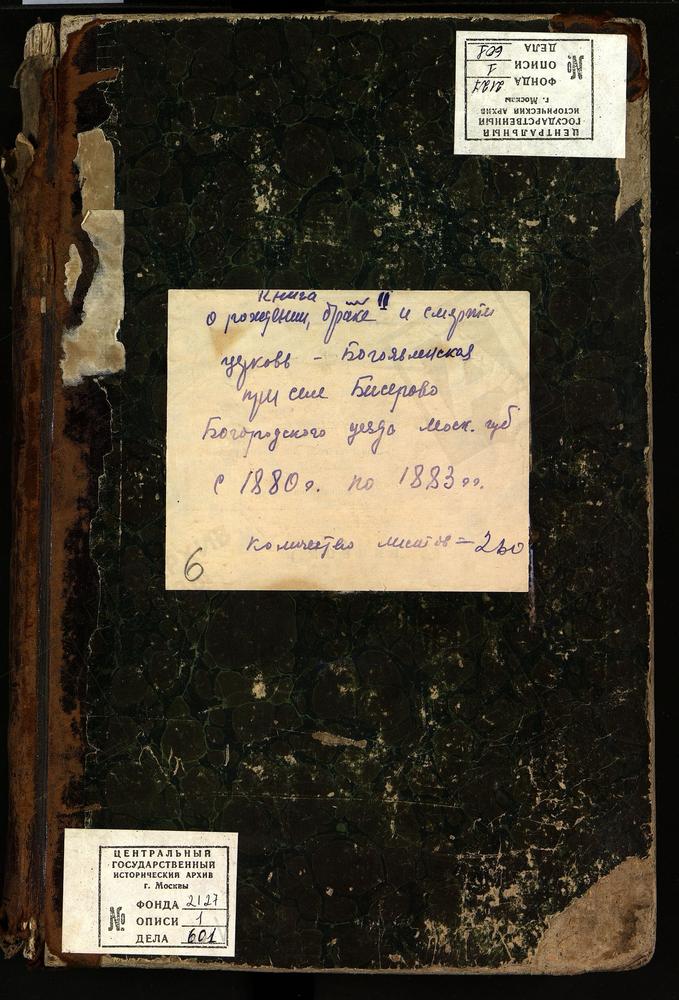 ЦЕНТРАЛЬНЫЙ
ГОСУДАРСТВЕННЫЙ
ИСТОРИЧЕСКИЙ АРХИВ
г. Москвы
№
ФОНДА 2127
ОПИСИ 1
ДЕЛА
Книга II
о рождении, браке и смерти
церковь - Богоявленская
при селе Бисерово
Богородского уезда Моск. губ
с 1880г. по 1883гг.
Количество листов =
6
ЦЕНТРАЛЬНЫЙ
ГОСУДАРСТВЕННЫЙ
ИСТОРИЧЕСКИЙ АРХИВ
г. Москвы
№
ФОНДА 2127
ОПИСИ 1
ДЕЛА 601